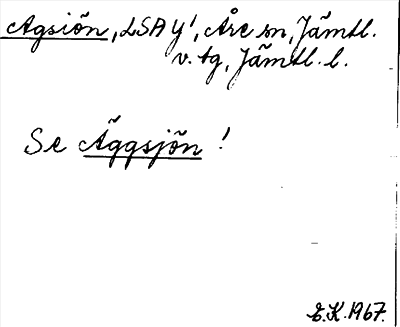 Agsiön, LSA y', Åre sn, Jämtl.
v. tg, Jämtl. l.
Se Äggsjön !
E.K. 1967.